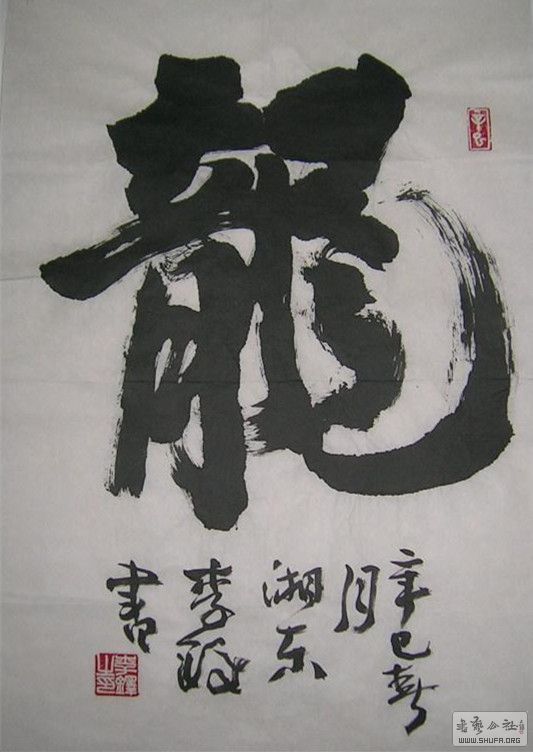 龍
辛巳春
月
湘东
李鐸
書
李鐸之印
书艺公社
WWW.SHUFA.ORG